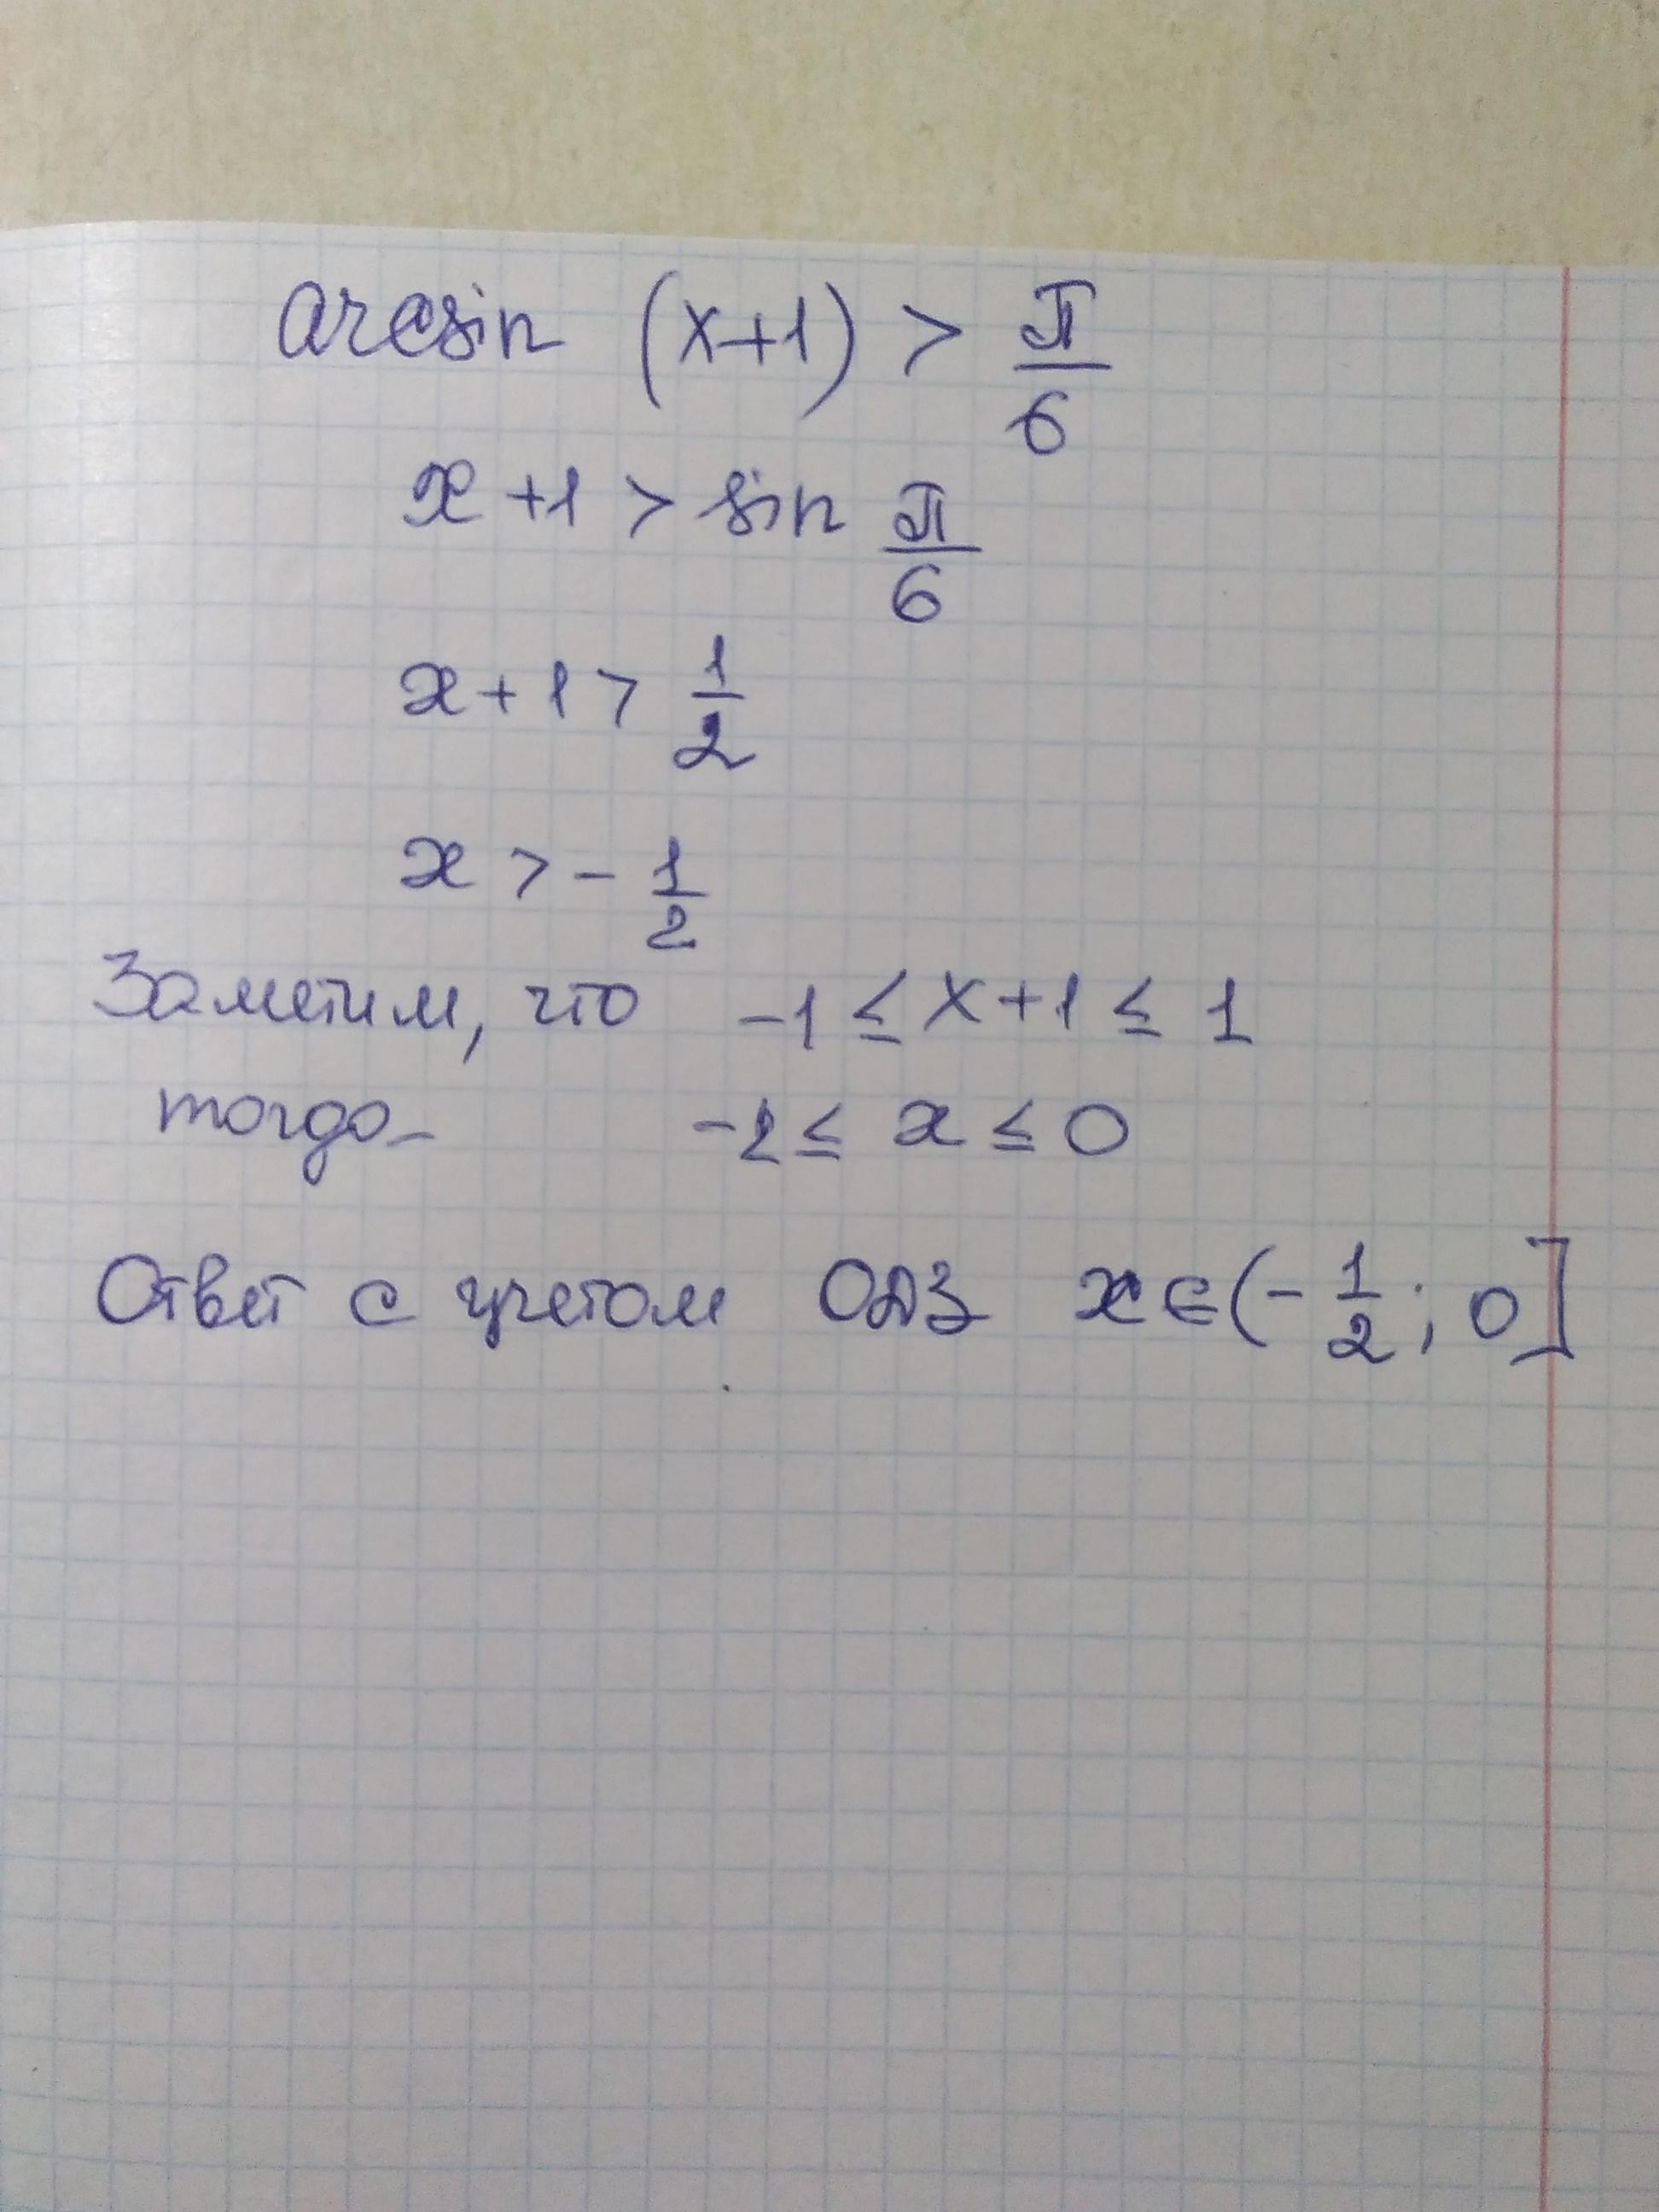 arcsin (x+1) > π/6
x+1 > sin π/6
x+1 > 1/2
x > - 1/2
Заметим, что -1 ≤ x+1 ≤ 1
тогда -2 ≤ x ≤ 0
Ответ с учетом ОДЗ x∈(- 1/2; 0]